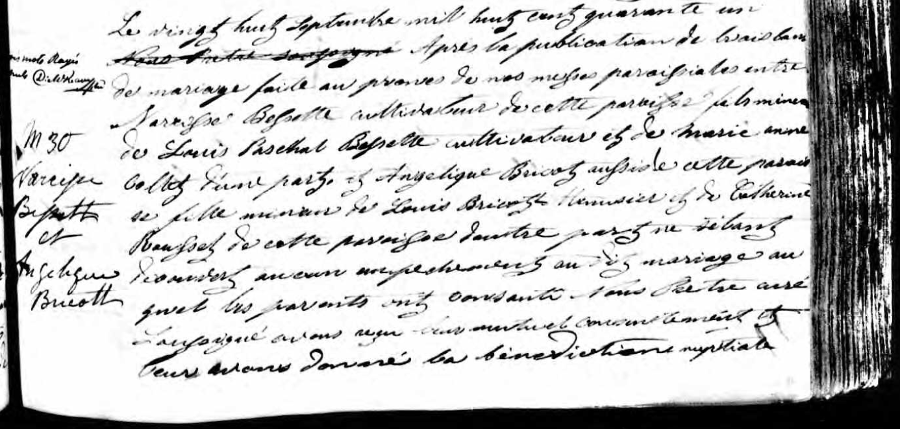 Le vingt huit Septembre mil huit cent quarante un
Nous Prêtre soussigné Après la publication de trois bans
de mariage faite au prones de nos messes paroissiales entre
Narcisse Bessette cultivateur de cette paroisse fils mineur
de Louis Paschal Bessette cultivateur et de Marie anne
d'une part, et Angelique Bricot aussi de cette parois
se fille mineur de Louis Bricot Menuisier et de Catherine
Rousset de cette paroisse d'autre part ne s'étant
découvert aucun empechement au dit mariage au
quel les parents ont consanti Nous Prêtre curé
Soussigné avons reçu leur mutuel consentement et
leur avons donné la bénédiction nuptiale
mots Rayés
M 30
Narcisse
Bessett
et
Angelique
Bricott